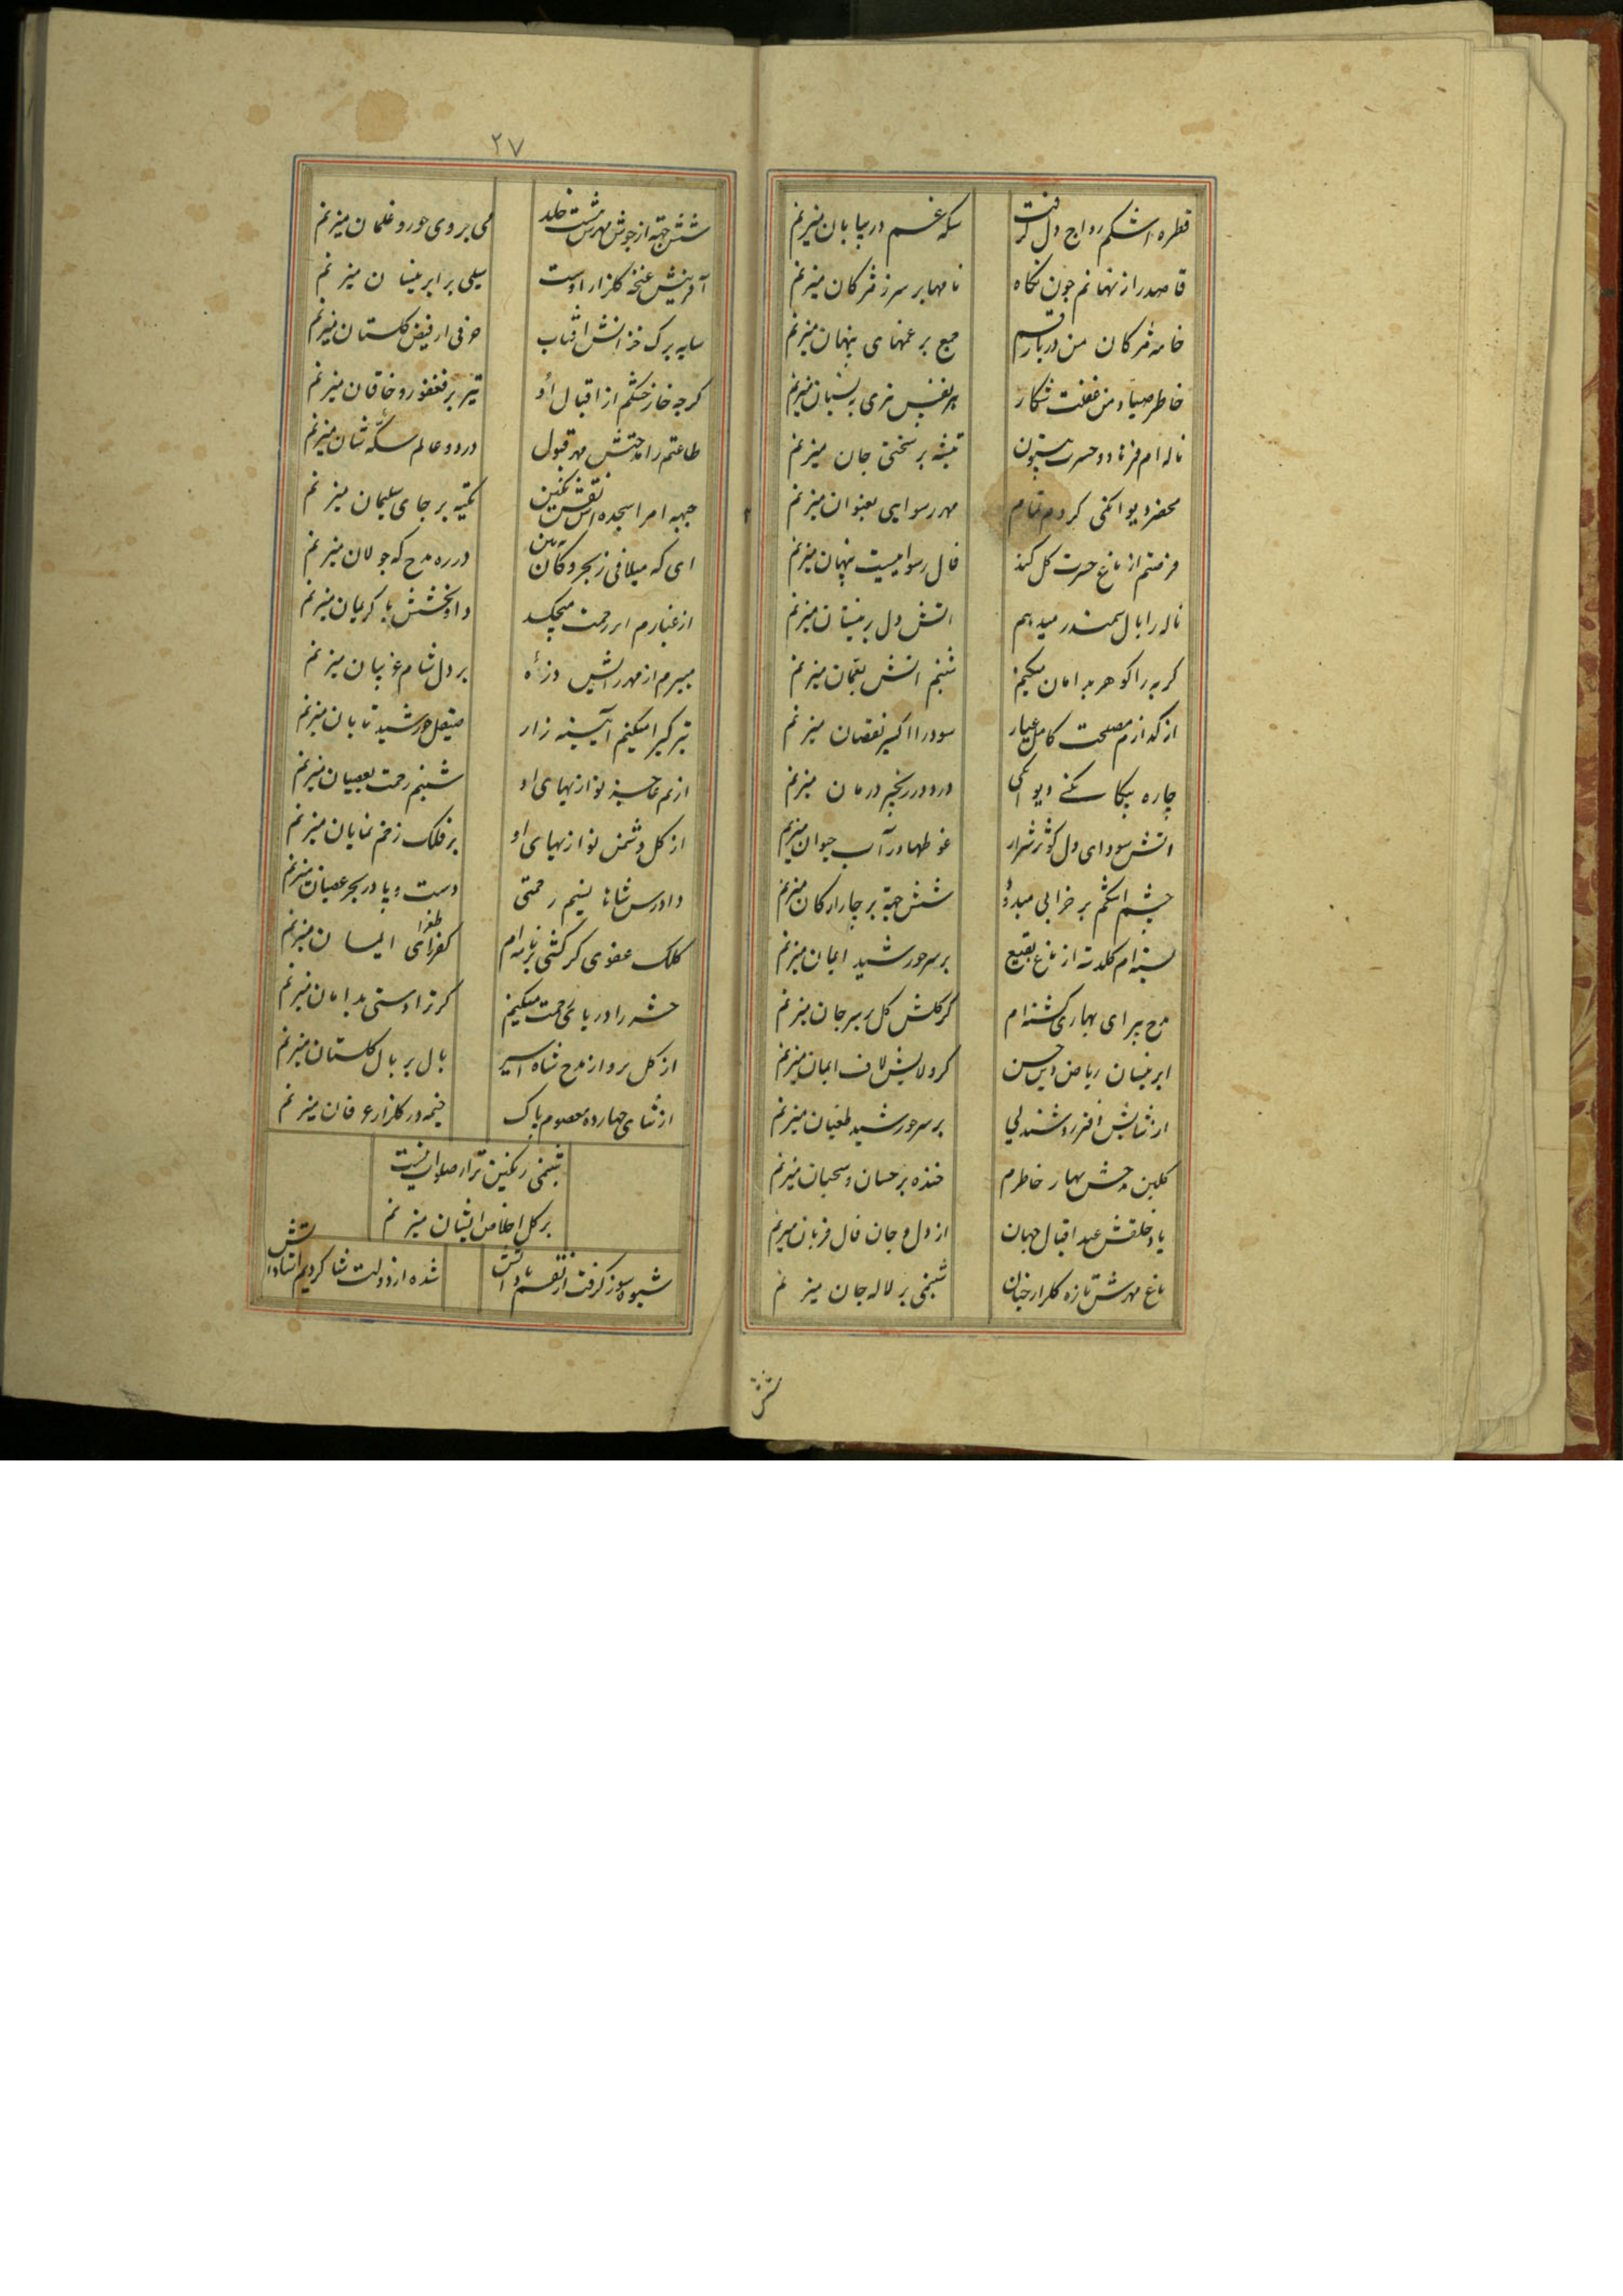 قطره اشکم رواج دل گرفت
سکه غم در بیابان میزنم
قاصد راز نهانم چون نگاه
نامها بر سر ز مژگان میزنم
خامه مژگان من دریا رقم
بر غمهای پنهان میزنم
خاطر صیاد من غفلت شکار
ناله ام فرهاد و حسرت بیستون
تیشه بر سختی جان میزنم
محضر دیوانگی کردم تمام
مهر رسوایی بعنوان میزنم
فرصتم از باغ حسرت گل کند
فال رسوائیست پنهان میزنم
ناله را بال سمندر میدهم
اتش دل بر نیستان میزنم
گریه را گوهر بدامان میکنم
شبنم اتش میزنم
از گداز مصلحت کامل عیار
سود را اکسیر نقصان میزنم
چاره بیگانگی دیوانگی
درد در زنجیر درمان میزنم
اتش سودای دل کوثر شرار
غوطها در آب حیوان میزنم
چشم اشکم بر خرابی میدود
شش جهة بر چار ارکان میزنم
بسته ام گلدسته از باغ بقیع
بر سر خورشید ایمان میزنم
مدح پیرای بهاری گشته ام
کز گلش گل بر سر جان میزنم
ابر نیسان ریاض دین حسن
کز ولایش لاف ایمان میزنم
از ثنایش افسر روشندلی
بر سر خورشید طغیان میزنم
گلبن مدحش بهار خاطرم
خنده بر حسان و سحبان میزنم
یاد خلقش عید اقبال جهان
از دل و جان فال قربان میزنم
باغ مهرش تازه گلزار جنان
شبنمی بر لاله جان میزنم
شش
۲۷
شش جهة از جوش مهرش هشت خلد
می بروی حور و غلمان میزنم
آفرینش غنچه گلزار اوست
سیلی بر ابر نیسان میزنم
سایه برگ خزانش افتاب
حرفی از فیض گلستان میزنم
گرچه خار خشکم از اقبال او
تیر بر فغفور و خاقان میزنم
طاعتم را مدحتش مهر قبول
در دو عالم سکه شان میزنم
جبهه ام را سجده اش نقش نگین
تکیه بر جای سلیمان میزنم
ای که میلافی ز بحر و کان ببین
در ره مدح که جولان میزنم
از غبارم ابر رحمت میچکد
داد بخشش با کریمان میزنم
میبرم از مهر رایش ذره
بر دل شام غریبان میزنم
تیرگی را میکنم آیینه زار
صیقل خورشید تابان میزنم
از نم عاجز نوازیهای او
شبنم رحمت بعصیان میزنم
از گل دشمن نوازیهای او
بر فلک زخم نمایان میزنم
دادرس شاها نسیم رحمتی
دست و پا در بحر عصیان میزنم
کلک عفوی گر کشی بر نامه ام
کفر را طغرای ایمان میزنم
حشر را دریای رحمت میکنم
گر ترا دستی بدامان میزنم
از گل پرواز مدح شاه اسیر
بال بر بال گلستان میزنم
از ثنای چهارده معصوم پاک
خیمه در گلزار عرفان میزنم
شبنمی رنگین تر از صلوات نیست
بر گل اخلاص ایشان میزنم
شیوه سوز گرفت از نفسم یاد اتش
شده از دولت شاگردیم استاد اتش